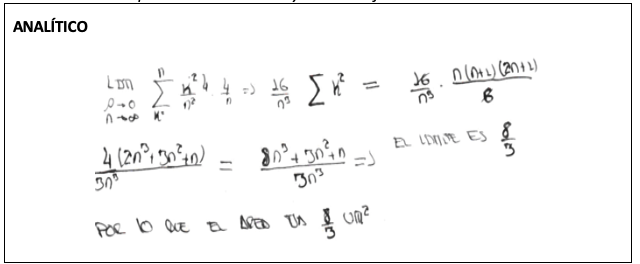 ANALÍTICO
Lim p→0 n→∞ ∑ n k² 4/n² · 4/n => 16/n³ ∑ k² = 16/n³ · n(n+1)(2n+1)/6
4(2n³+3n²+n)/3n³ = 8n³+3n²+n/3n³ => EL LIMITE ES 8/3
POR lo QUE EL AREA 8/3 um²